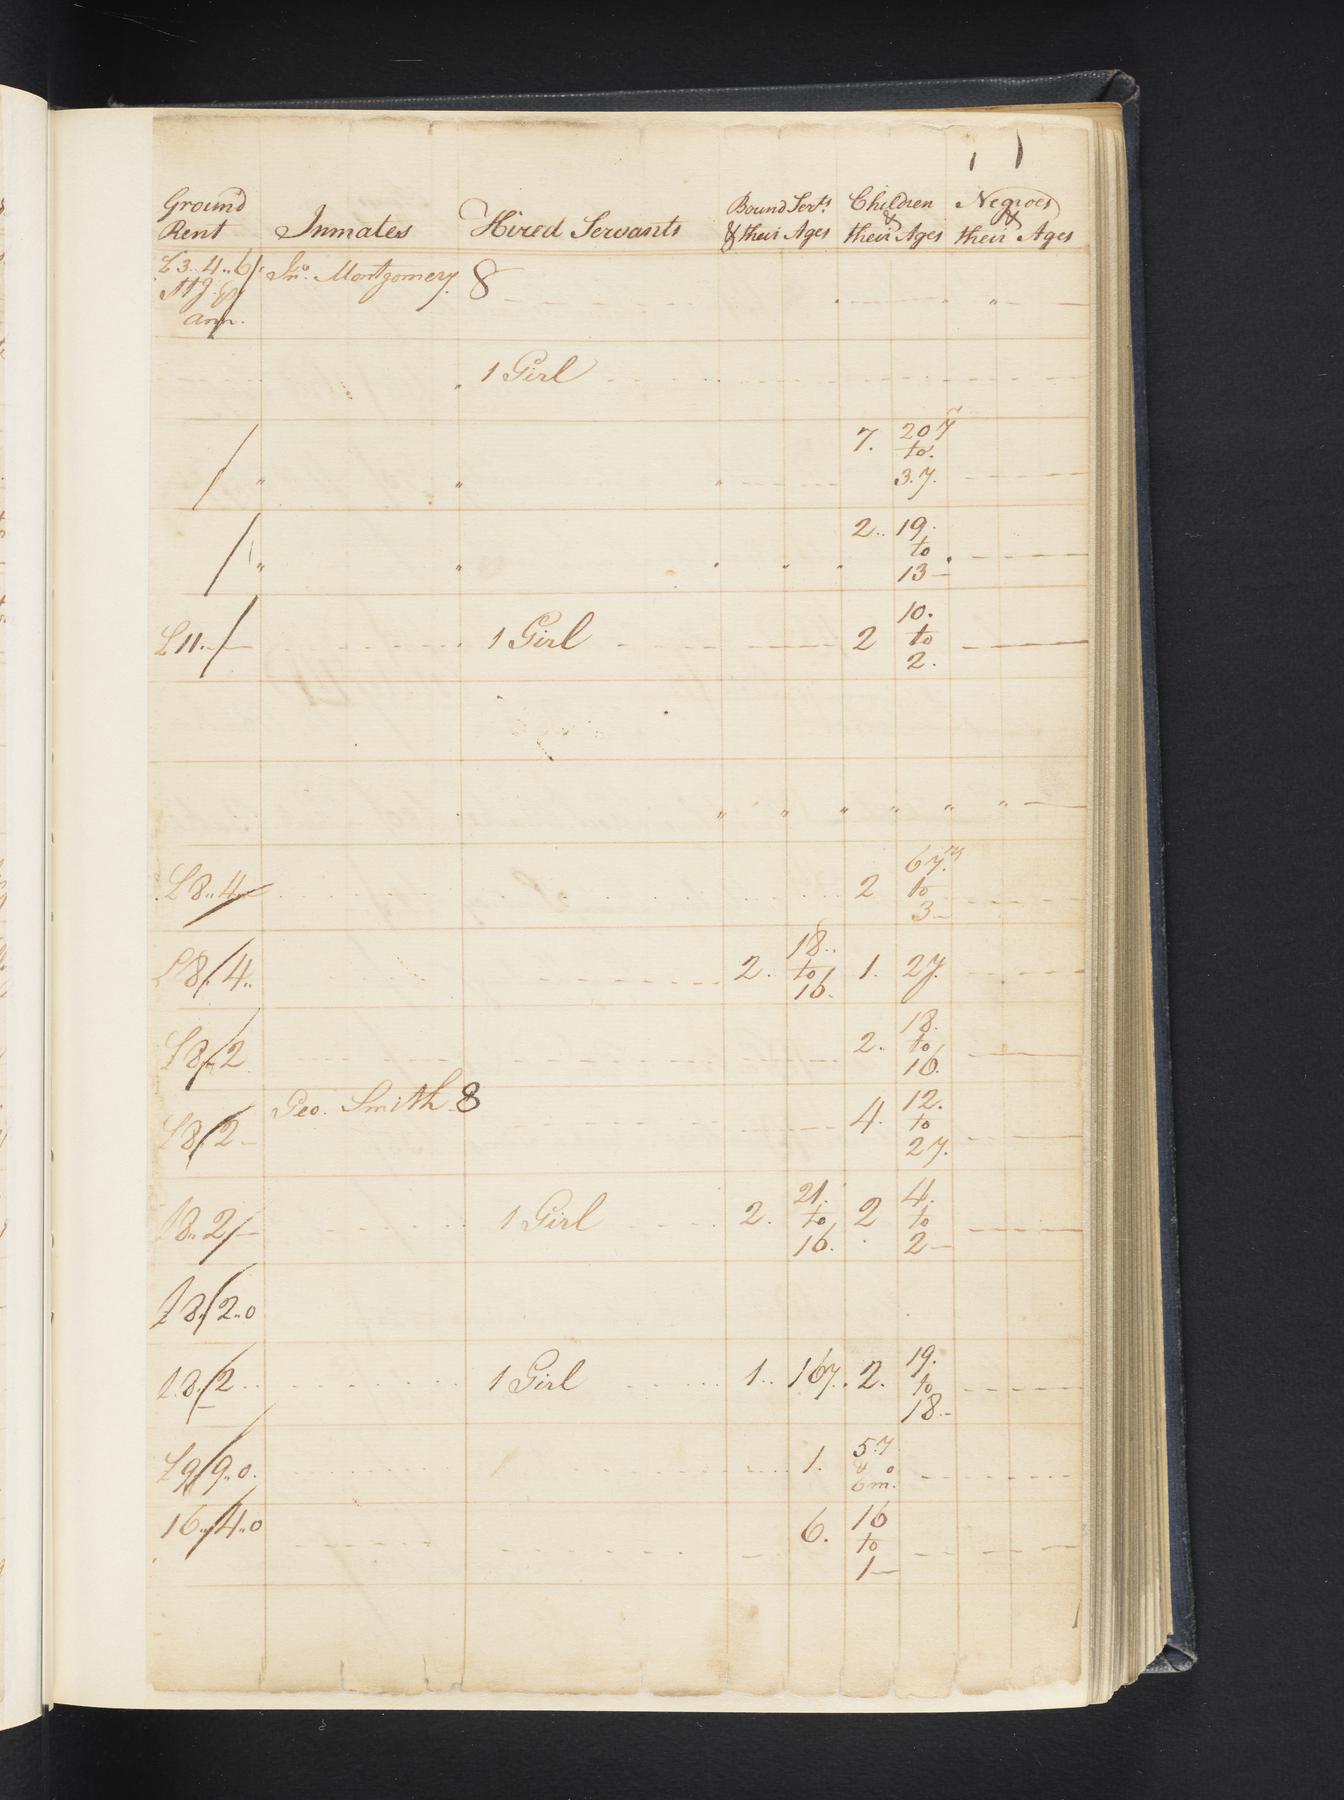 Ground Rent | Inmates | Hired Servants | Bound Servts. & their Ages | Children & their Ages | Negroes & their Ages
£3..4..6 Stg. pr ann. | Jno. Montgomery. 8
1 Girl
7. | 20 y to 3.y.
2.. | 19. to 13
£11.. | 1 Girl | 2 | 10. to 2.
£8..4.. | 2 | 6 y. to 3
£8..4.. | 2. | 18.. to 16. | 1. | 2 y.
£8..2 | 2. | 18. to 16.
£8..2 | Geo. Smith 8 | 4. | 12. to 2 y.
£8..2 | 1 Girl | 2. | 21. to 16. | 2 | 4. to 2
£8..2..0
£8..2.. | 1 Girl | 1.. | 16 y. | 2. | 19. to 18..
£9..9..0. | 1. | 5.y & 6 m.
16..4..0 | 6. | 16 to 1